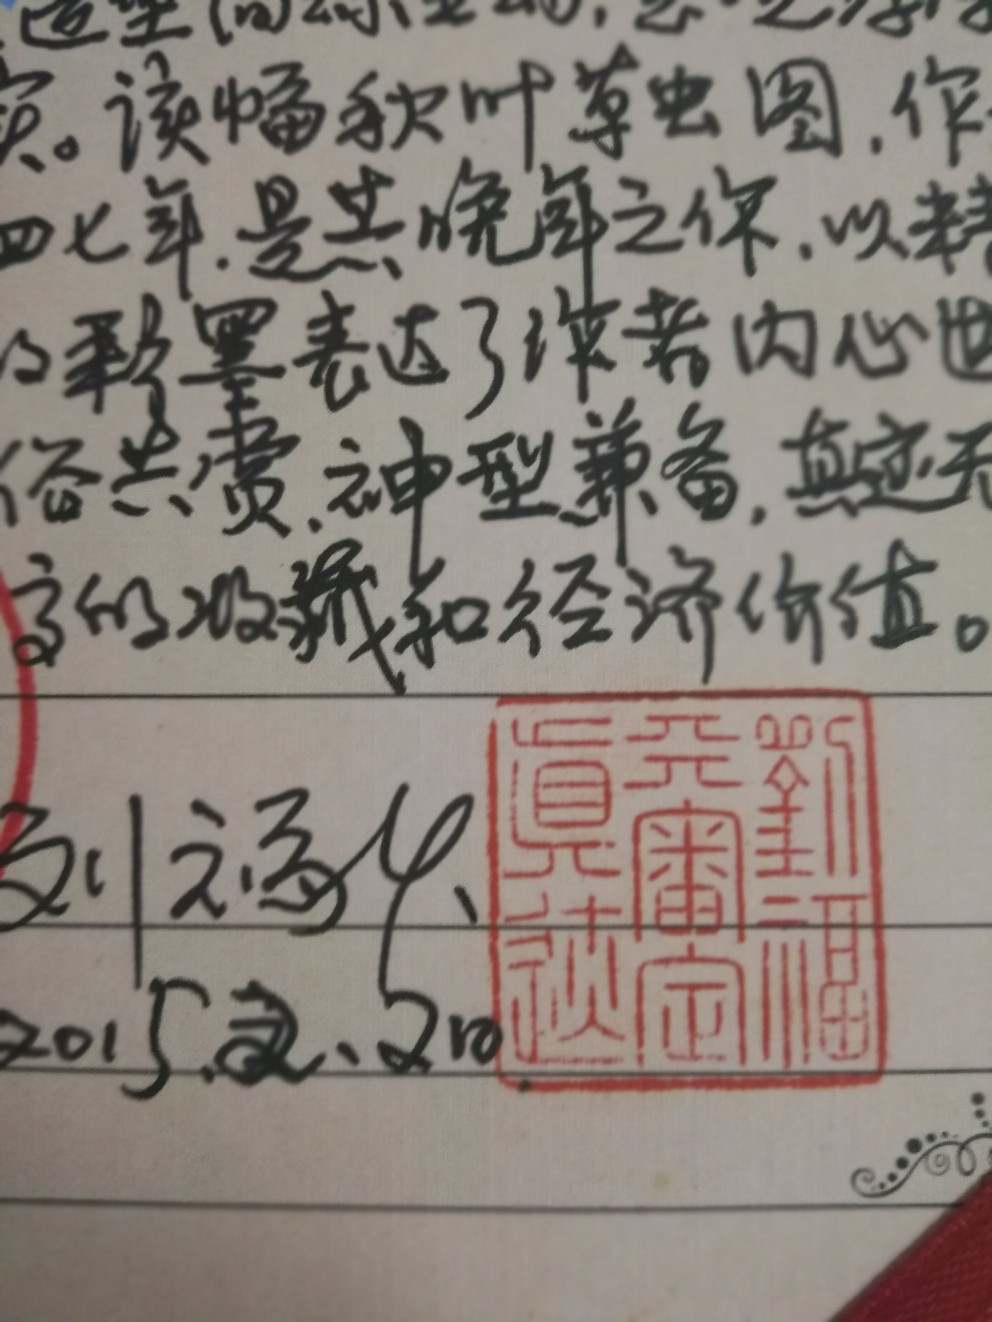 实。该幅秋叶草虫图，作
四七年，是其晚年之作，以精
的彩墨表达了作者内心世
俗共赏，神型兼备，真迹无
高的收藏和经济价值。
刘福
2015.
劉福
元審定
真迹